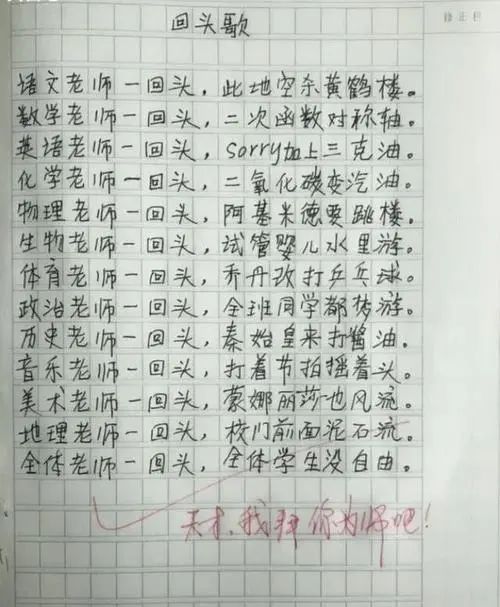 修正栏
回头歌
语文老师一回头，此地空杀黄鹤楼。
数学老师一回头，二次函数对称轴。
英语老师一回头，sorry加上三克油。
化学老师一回头，二氧化碳变汽油。
物理老师一回头，阿基米德要跳楼。
生物老师一回头，试管婴儿水里游。
体育老师一回头，乔丹改打乒乓球。
政治老师一回头，全班同学都梦游。
历史老师一回头，秦始皇来打酱油。
音乐老师一回头，打着节拍摇着头。
美术老师一回头，蒙娜丽莎也风流。
地理老师一回头，校门前面泥石流。
全体老师一回头，全体学生没自由。
天才，我拜你为师吧！